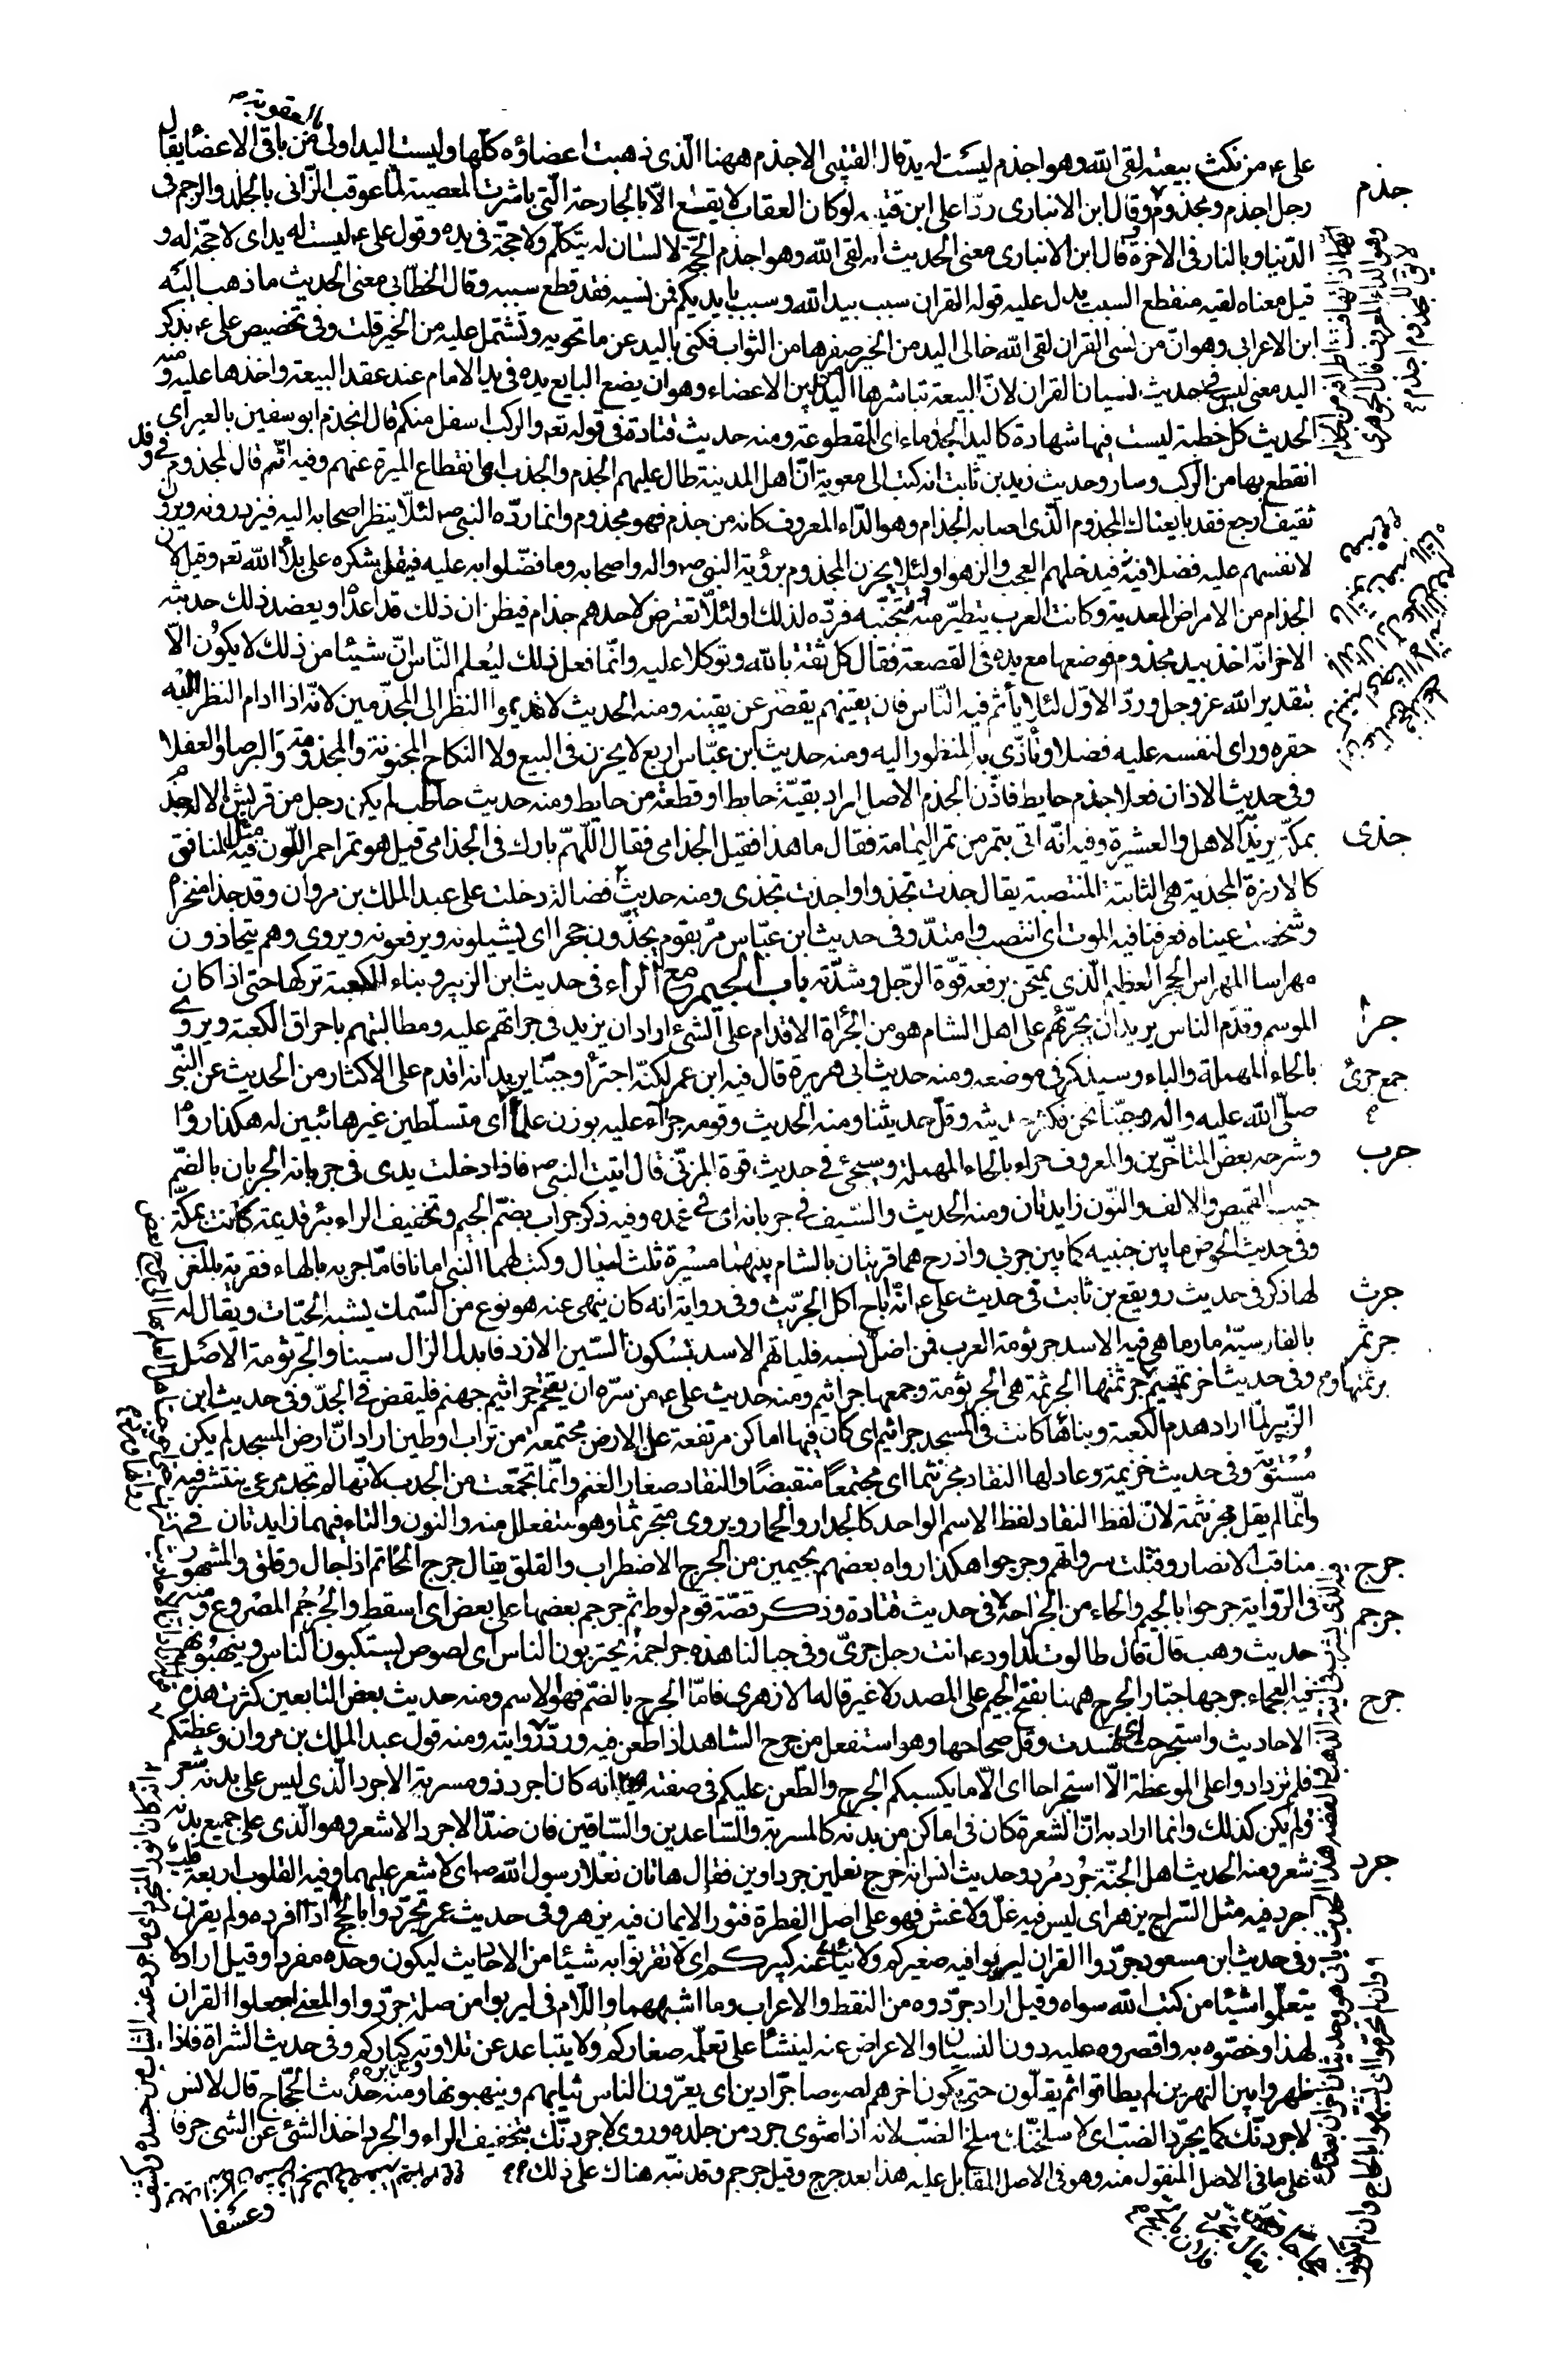 بالعقوبة
على ع من نكث بيعته لقى الله وهو اجذم ليست له يد قال القتيبى الاجذم ههنا الّذى ذهبت اعضاؤه كلّها وليست اليد اولى من باقى الاعضا يقال
جذم
رجل اجذم ومجذوم وقال ابن الانبارى ردّا على ابن قتيبه لو كان العقاب لا يقع الّا بالجارحة الّتى باشرت المعصية لما عوقب الزّانى بالجلد والرجم فى
الدّنيا وبالنار فى الاخرة قال ابن الانبارى معنى الحديث انه لقى الله وهو اجذم الحجّة لا لسان له يتكلّم ولا حجّة فى يده وقول على ع ليست له يد اى لا حجّة له و
قيل معناه لقيه منقطع السبب يدل عليه قوله القران سبب بيد الله وسبب بايديكم فمن نسيه فقد قطع سببه وقال الخطابى معنى الحديث ما ذهب اليه
ابن الاعرابى وهو انّ من نسى القران لقى الله خالى اليد من الخير صفرها من الثواب فكنى باليد عن ما تحويه وتشتمل عليه من الخير قلت وفى تخصيص على ع بذكر
اليد معنى ليس فى حديث نسيان القران لانّ البيعة تباشرها اليد من بين الاعضاء وهو ان يضع البايع يده فى يد الامام عند عقد البيعة واخذها عليه ومنه
الحديث كل خطبة ليست فيها شهادة كاليد الجذماء اى المقطوعة ومنه حديث قتادة فى قوله تعه والركب اسفل منكم قال انجذم ابو سفين بالعير اى
انقطع بها من الركب وسار وحديث زيد بن ثابت انه كتب الى معوية انّ اهل المدينة طال عليهم الجذم والجذب اى انقطاع الميرة عنهم وفيه انّه قال لمجذوم فى وفد
ثقيف ارجع فقد بايعناك المجذوم الّذى اصابه الجذام وهو الدّاء المعروف كانه من جذم فهو مجذوم وانما ردّه النبى ص لئلّا ينظر اصحابه اليه فيزدرونه ويرون
لانفسهم عليه فضلا فيدخلهم العجب والزهو او لئلا يحزن المجذوم برؤية النبى ص واله واصحابه وما فضّلوا به عليه فيقل شكره على بلاء الله تعه وقيل لان
الجذام من الامراض المعدية وكانت العرب يتطيّر منه وتتجنّبه فردّه لذلك او لئلّا تعترض لاحدهم جذام فيظن ان ذلك قد اعداه ويعضد ذلك حديثه
الاخر انّه اخذ بيد مجذوم فوضعها مع يده فى القصعة فقال كل ثقة بالله وتوكلا عليه وانّما فعل ذلك ليُعلم النّاس انّ شيئا من ذلك لا يكون الّا
بتقدير الله عزوجل وردّ الاوّل لئلا يأثم فيه النّاس فان يقينهم يقصر عن يقينه ومنه الحديث لا تديموا النظر الى المجذّمين لانّه اذا ادام النظر اليه
حقره وراى لنفسه عليه فضلا وتأذّى بالمنظور اليه ومنه حديث ابن عبّاس اربع لا يجزن فى البيع ولا النكاح المجنونة والمجذومة والبرصا والعفلا
وفى حديث الاذان فعلا جذم حايط فاذّن الجذم الاصل اراد بقيّة حايط او قطعة من حايط ومنه حديث حاطب لم يكن رجل من قريش الا له جذم
بمكّة يريد الاهل والعشيرة وفيه انّه اتى بتمر من تمر اليمامة فقال ما هذا فقيل الجذامى فقال اللّهمّ بارك فى الجذامى قيل هو تمر احمر اللّون فيه مثل المنافق
جذى
كالارزة المجذية هى الثابتة المنتصبة يقال جذت تجذو اواجذت تجذى ومنه حديث فضالة دخلت على عبد الملك بن مروان وقد جذا منخراه
وشخصت عيناه فعرفنا فيه الموت اى انتصب وامتدّ وفى حديث ابن عبّاس مرّ بقوم يجذّون حجرا اى يشيلونه ويرفعونه ويروى وهم يتجاذون
مهراسا المهراس الحجر العظيم الّذى يمتحن برفعه قوّة الرّجل وشدّته باب الجيم مع الرّاء فى حديث ابن الزبير وبناء الكعبة تركها حتى اذا كان
جرأ
الموسم وقدم الناس يريد ان يجرّئهم على اهل الشام هو من الجرأة الاقدام على الشئ اراد ان يزيد فى جراتهم عليه ومطالبتهم باحراق الكعبة ويروى
بالحاء المهملة والباء وسيذكر فى موضعه ومنه حديث ابى هريرة قال فيه ابن عمر لكنّه اجترأ وجبنّا يريد انه اقدم على الاكثار من الحديث عن النّبى
جمع جرئ
صلّى الله عليه واله وجبنا نحن فكثر حديثه وقلّ حديثنا ومنه الحديث وقومه جرآء عليه بوزن علماء اى متسلّطين غير هائبين له هكذا رواه
وشرحه بعض المتاخّرين والمعروف حراء بالحاء المهملة وسيجئ فى حديث قرة المزنى قال اتيت النبى ص فاذا دخلت يدى فى جربانه الجربان بالضّم
جرب
جيب القميص والالف والنّون زايدتان ومنه الحديث والسّيف فى جربانه اى فى غمده وفيه ذكر جراب بضمّ الجيم وتخفيف الراء بئر قديمة كانت بمكّة
وفى حديث الحوض ما بين جنبيه كما بين جربى واذرح هما قريتان بالشام بينهما مسيرة ثلث ليال وكتب لهما النبى امانا فامّا جربه بالهاء فقرية بالمغرب
لها ذكر فى حديث رويفع بن ثابت فى حديث على ع انّه اباح اكل الجرّيث وفى رواية انه كان ينهى عنه هو نوع من السّمك يشبه الحيّات ويقال له
جرث
بالفارسيّة مارماهى فيه الاسد جرثومة العرب فمن اضلّ نسبه فلياتهم الاسد بسكون السّين الازد فابدل الزال سينا والجرثومة الاصل
جرثم
وفى حديث اخر تميم برثمتها وجرثمتها الجرثمة هى الجرثومة وجمعها جراثيم ومنه حديث على ع من سرّه ان يتقحّم جراثيم جهنم فليقض فى الجدّ وفى حديث ابن
الزّبير لمّا اراد هدم الكعبة وبناها كانت فى المسجد جراثيم اى كان فيها اماكن مرتفعة على الارض مجتمعة من تراب او طين اراد انّ ارض المسجد لم يكن
مُسْتوية وفى حديث خزيمة وعاد لها النقاد مجرنثما اى مجتمعًا منقبضًا والنقاد صغار الغنم وانّما تجمّعت من الجدب لانّها لم تجد مرعى ينتشر فيه
وانّما لم يقل مجرنثمة لانّ لفظ النقاد لفظ الاسم الواحد كالجدار والحمار ويروى متجرثما وهو متفعلل منه والنون والتاء فيهما زايدتان فى
مناقب الانصار وقتلت سرواتهم وجرجوا هكذا رواه بعضهم بجيمين من الجرج الاضطراب والقلق يقال جرج الخاتم اذا جال وقلق والمشهور
جرج
فى الرّواية جرحوا بالجيم والحاء من الجراحة فى حديث قتادة وذكر قصّة قوم لوط ثم جرجم بعضها على بعض اى اسقط والجُرجُم المصروع ومنه
جرجم
حديث وهب قال قال طالوت لداود ع انت رجل جرىّ وفى جبالنا هذه جراجمة يحتربون الناس اى لصوص يستلبون الناس وينهبونهم
فيه العجماء جرحها جبّار الجرح ههنا بفتح الجيم على المصدر لا غير قاله الازهرى فامّا الجرح بالضّم فهو الاسم ومنه حديث بعض التابعين كثرت هذه
جرح
الاحاديث واستجرحت اى فسدت وقلّ صحاحها وهو استفعل من جرح الشاهد اذا طعن فيه وردّ روايته ومنه قول عبد الملك بن مروان وعظتكم
فلم تزدادوا على الموعظة الّا استجراحا اى الّا ما يكسبكم الجرح والطّعن عليكم فى صفته ص انه كان اجرد ذو مسربة الاجرد الّذى ليس على بدنه شعر
ولم يكن كذلك وانما اراد به انّ الشعرة كان فى اماكن من بدنه كالمسربة والسّاعدين والسّاقين فان ضدّ الاجرد الاشعر وهو الّذى على جميع بدنه
شعر ومنه الحديث اهل الجنّة جُرد مُرد وحديث انس انه خرج نعلين جرداوين فقال هاتان نعلا رسول الله ص اى لا شعر عليهما وفيه القلوب اربعة قلب
جرد
اجرد فيه مثل السّراج يزهر اى ليس فيه غلّ ولا غش فهو على اصل الفطرة فنور الايمان فيه يزهر وفى حديث عمر تجرّدوا بالحج اذا افرده ولم يقرن
وفى حديث ابن مسعود جرّدوا القران ليربوا فيه صغيركم ولا ينأى عنه كبيركم اى لا تقرنوا به شيئا من الاحاديث ليكون وحده مفردا وقيل اراد لا
يتعلّموا شيئا من كتب الله سواه وقيل اراد جرّدوه من النقط والاعراب وما اشبههما واللّام فى ليربوا من صلة جرّدوا والمعنى اجعلوا القران
لهذا وخصّوه به واقصروه عليه دون النسيان والاعراض عنه لينشأ على تعلّمه صغاركم ولا يتباعد عن تلاوته كباركم وفى حديث الشراة فاذا
ظهروا بين النهرين لم يطاقوا ثم يقلّون حتى يكون اخرهم لصوصا جرّادين اى يعرّون الناس ثيابهم وينهبونها ومنه حديث الحجّاج قال لانس
لاجردنّك كما يجرّد الضبّ اى لاسلخنّك سلخ الضبّ لانه اذا شوى جرد من جلده وروى لاجردنّك بتخفيف الراء والجرد اخذ الشئ عن الشى جرفا
على ما فى الاصل المنقول منه وهو فى الاصل المقابل عليه هذا بعد جرج وقيل جرجم وقد نبّه هناك على ذلك
وعسفا